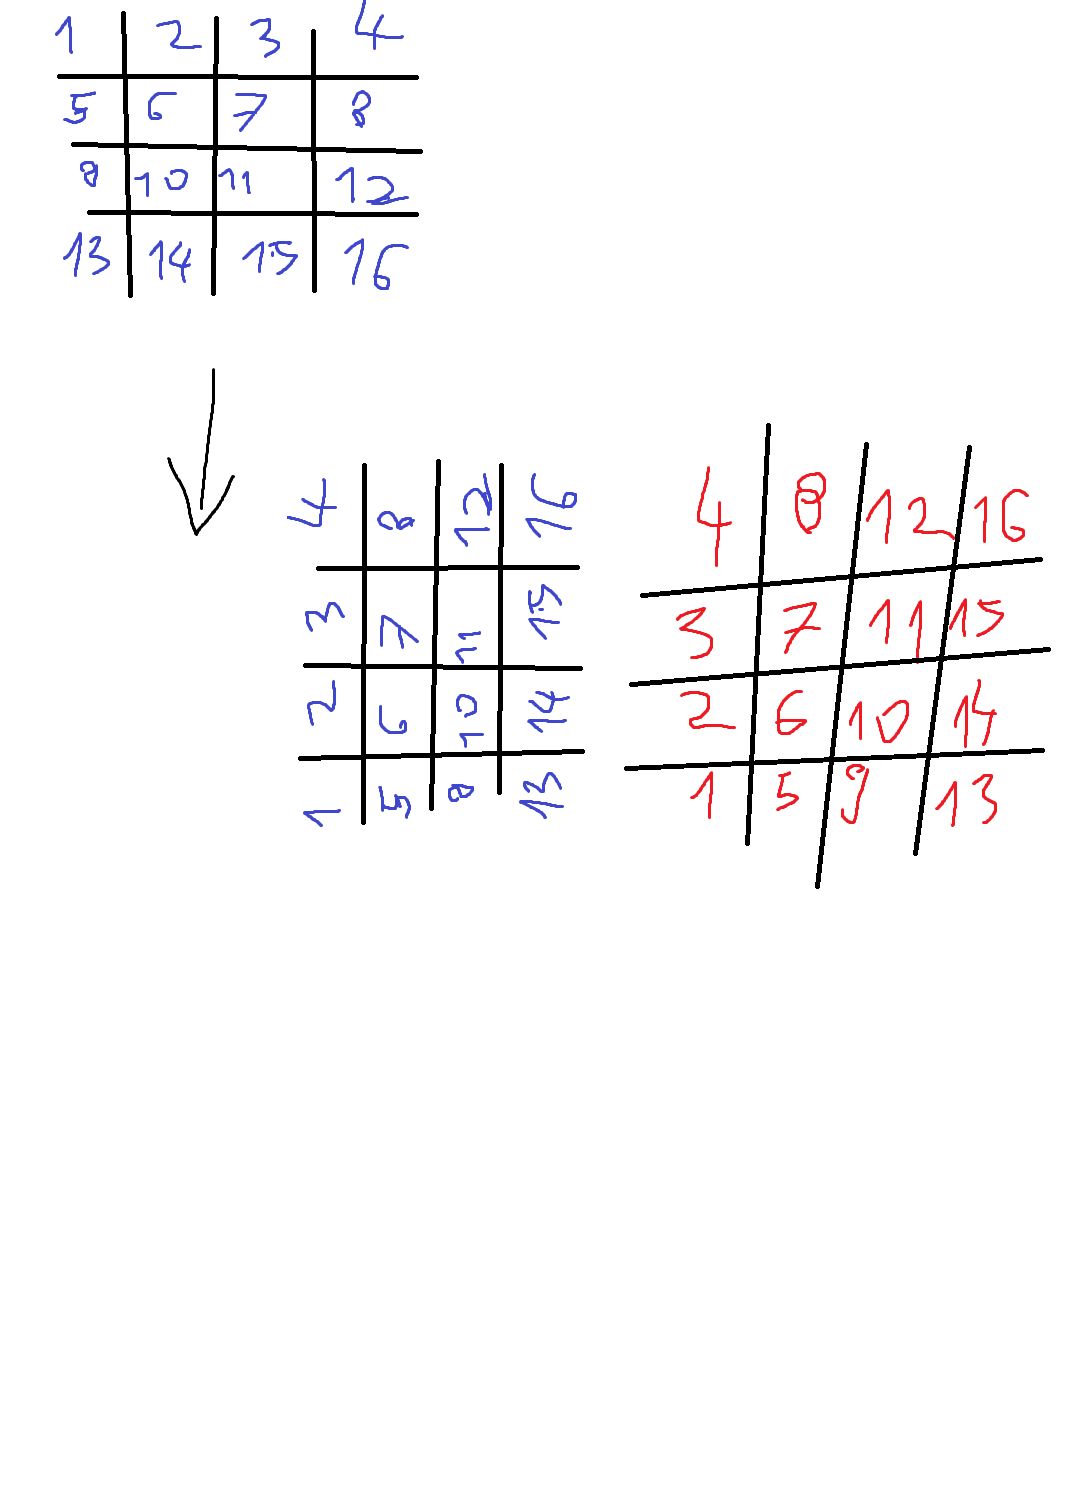 1 2 3 4
5 6 7 8
8 10 11 12
13 14 15 16
4 8 12 16
3 7 11 15
2 6 10 14
1 5 8 13
4 8 12 16
3 7 11 15
2 6 10 14
1 5 9 13